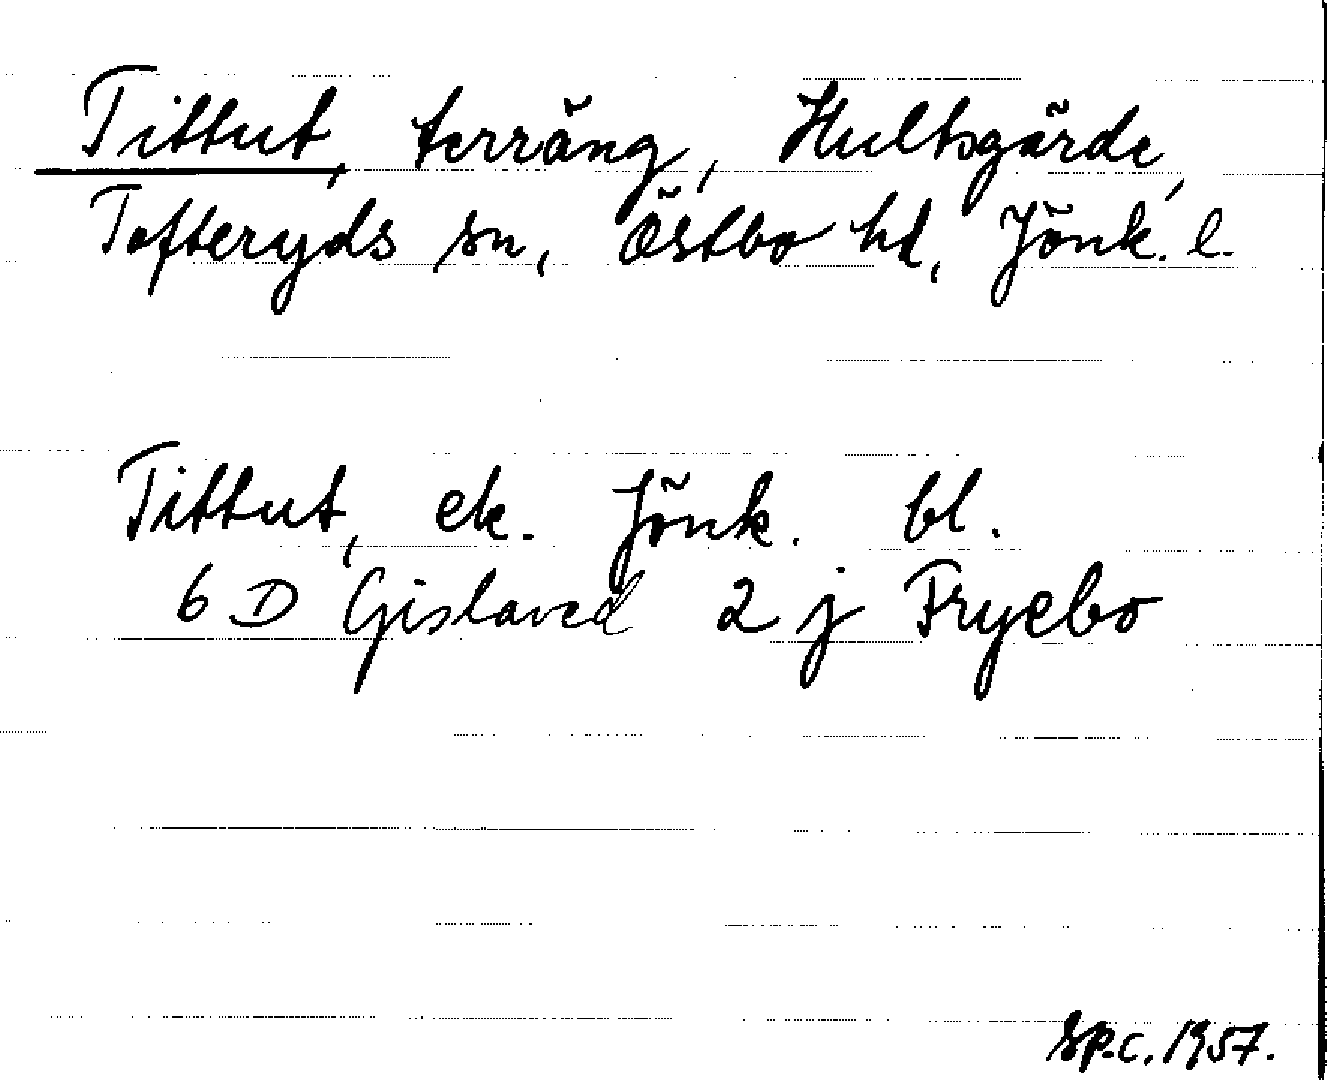 Tittut, terräng, Hultsgärde,
Tofteryds sn, Östbo hd, Jönk. l.
Tittut, ek. Jönk. bl.
6 D Gislaved 2 j Fryebo
sp.c. 1957.